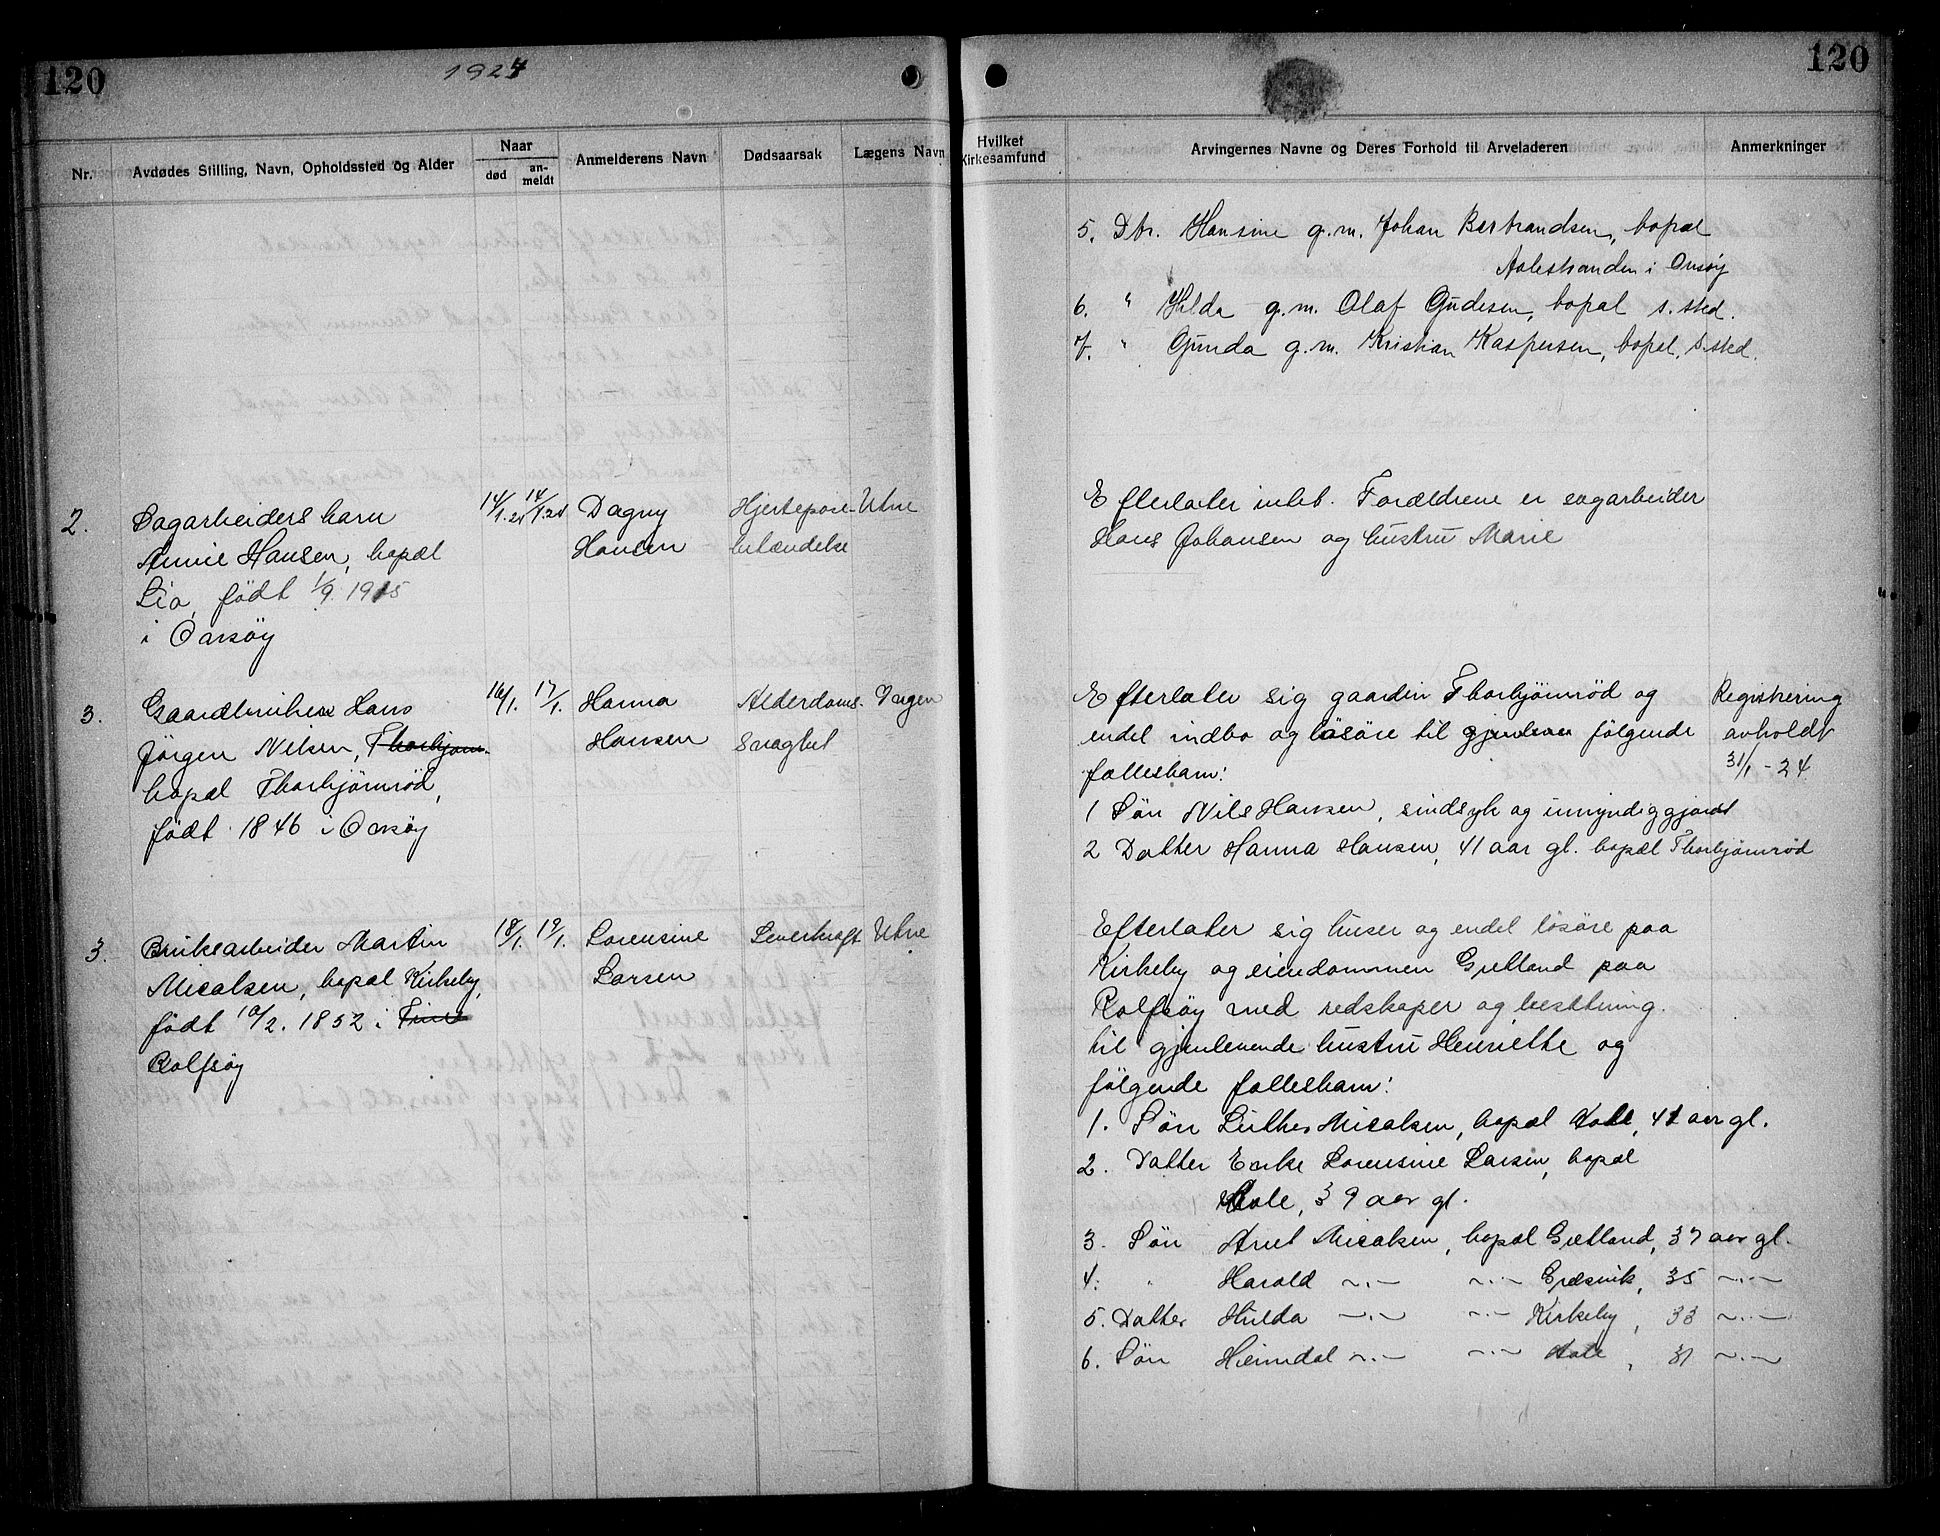 120
1924
120
Nr.
Avdødes Stilling, Navn, Opholdssted og Alder
Naar
død
an-
meldt
Anmelderens Navn
Dødsaarsak
Lægens Navn
Hvilket
Kirkesamfund
Arvingernes Navne og Deres Forhold til Arveladeren
Anmerkninger
5. Dtr. Hansine g.m. Johan Bertrandsen, bopæl
Aalestranden i Onsøy
6. " Hilda g.m. Olaf Gudesen, bopæl s. sted.
7. " Gunda g.m. Kristian Kaspersen, bopæl, s. sted.
2.
Sagarbeiders barn
Annie Hansen, bopæl
Lia, født 1/9. 1915
i Onsøy
14/1.24
14/1.24
Dagny
Hansen
Hjertepose-
betændelse
Utne
Efterlater intet. Forældrene er sagarbeider
Hans Johansen og hustru Marie
3.
Gaardbruker Hans
Jörgen Nilsen, Thorbjørn-
bopæl Thorbjörnröd,
født 1846 i Onsøy
16/1.
17/1.
Hanna
Hansen
Alderdoms-
svaghet
Efterlater sig gaarden Thorbjörnröd og
endel indbo og lösöre til følgende
fællesbarn:
1 Søn Nils Hansen, sindsyk og umyndiggjordt
2 Datter Hanna Hansen, 41 aar gl. bopæl Thorbjörnröd
Registrering
avholdt
31/1 - 24
3.
Bruksarbeider Martin
Micalsen, bopæl Kirkeby,
født 10/2. 1852 i
Rolfsöy
18/1.
19/1.
Lorensine
Larsen
Leverkræft
Utne
Efterlater sig huser og endel lösöre paa
Kirkeby og eiendommen Gretland paa
Rolfsöy med redskaper og besettning.
til gjenlevende hustru Henriette og
følgende fællesbarn:
1. Søn Luther Micalsen, bopæl Aale, 41 aar gl.
2. Datter Enke Lorensine Larsen, bopæl
Aale, 39 aar gl.
3. Søn Arnt Micalsen, bopæl Gretland, 37 aar gl.
4. " Harald ~.~ ~.~ Gresvik, 35 ~.~
5. Datter Hulda ~.~ ~.~ Kirkeby, 33 ~.~
6. Søn Heimdal ~.~ ~.~ Aale, 31 ~.~